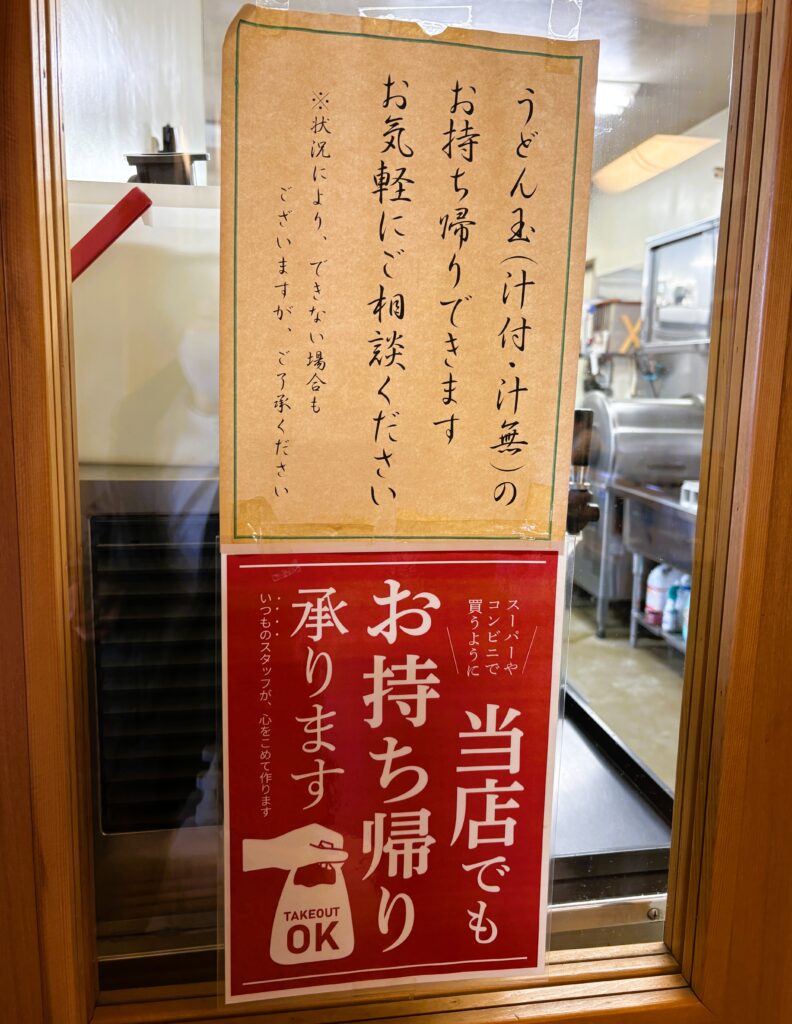 うどん玉(汁付・汁無)の
お持ち帰りできます
お気軽にご相談ください
※状況により、できない場合も
ございますが、ご了承ください
スーパーや
コンビニで
買うように
当店でも
お持ち帰り
承ります
いつものスタッフが、心をこめて作ります
TAKEOUT
OK